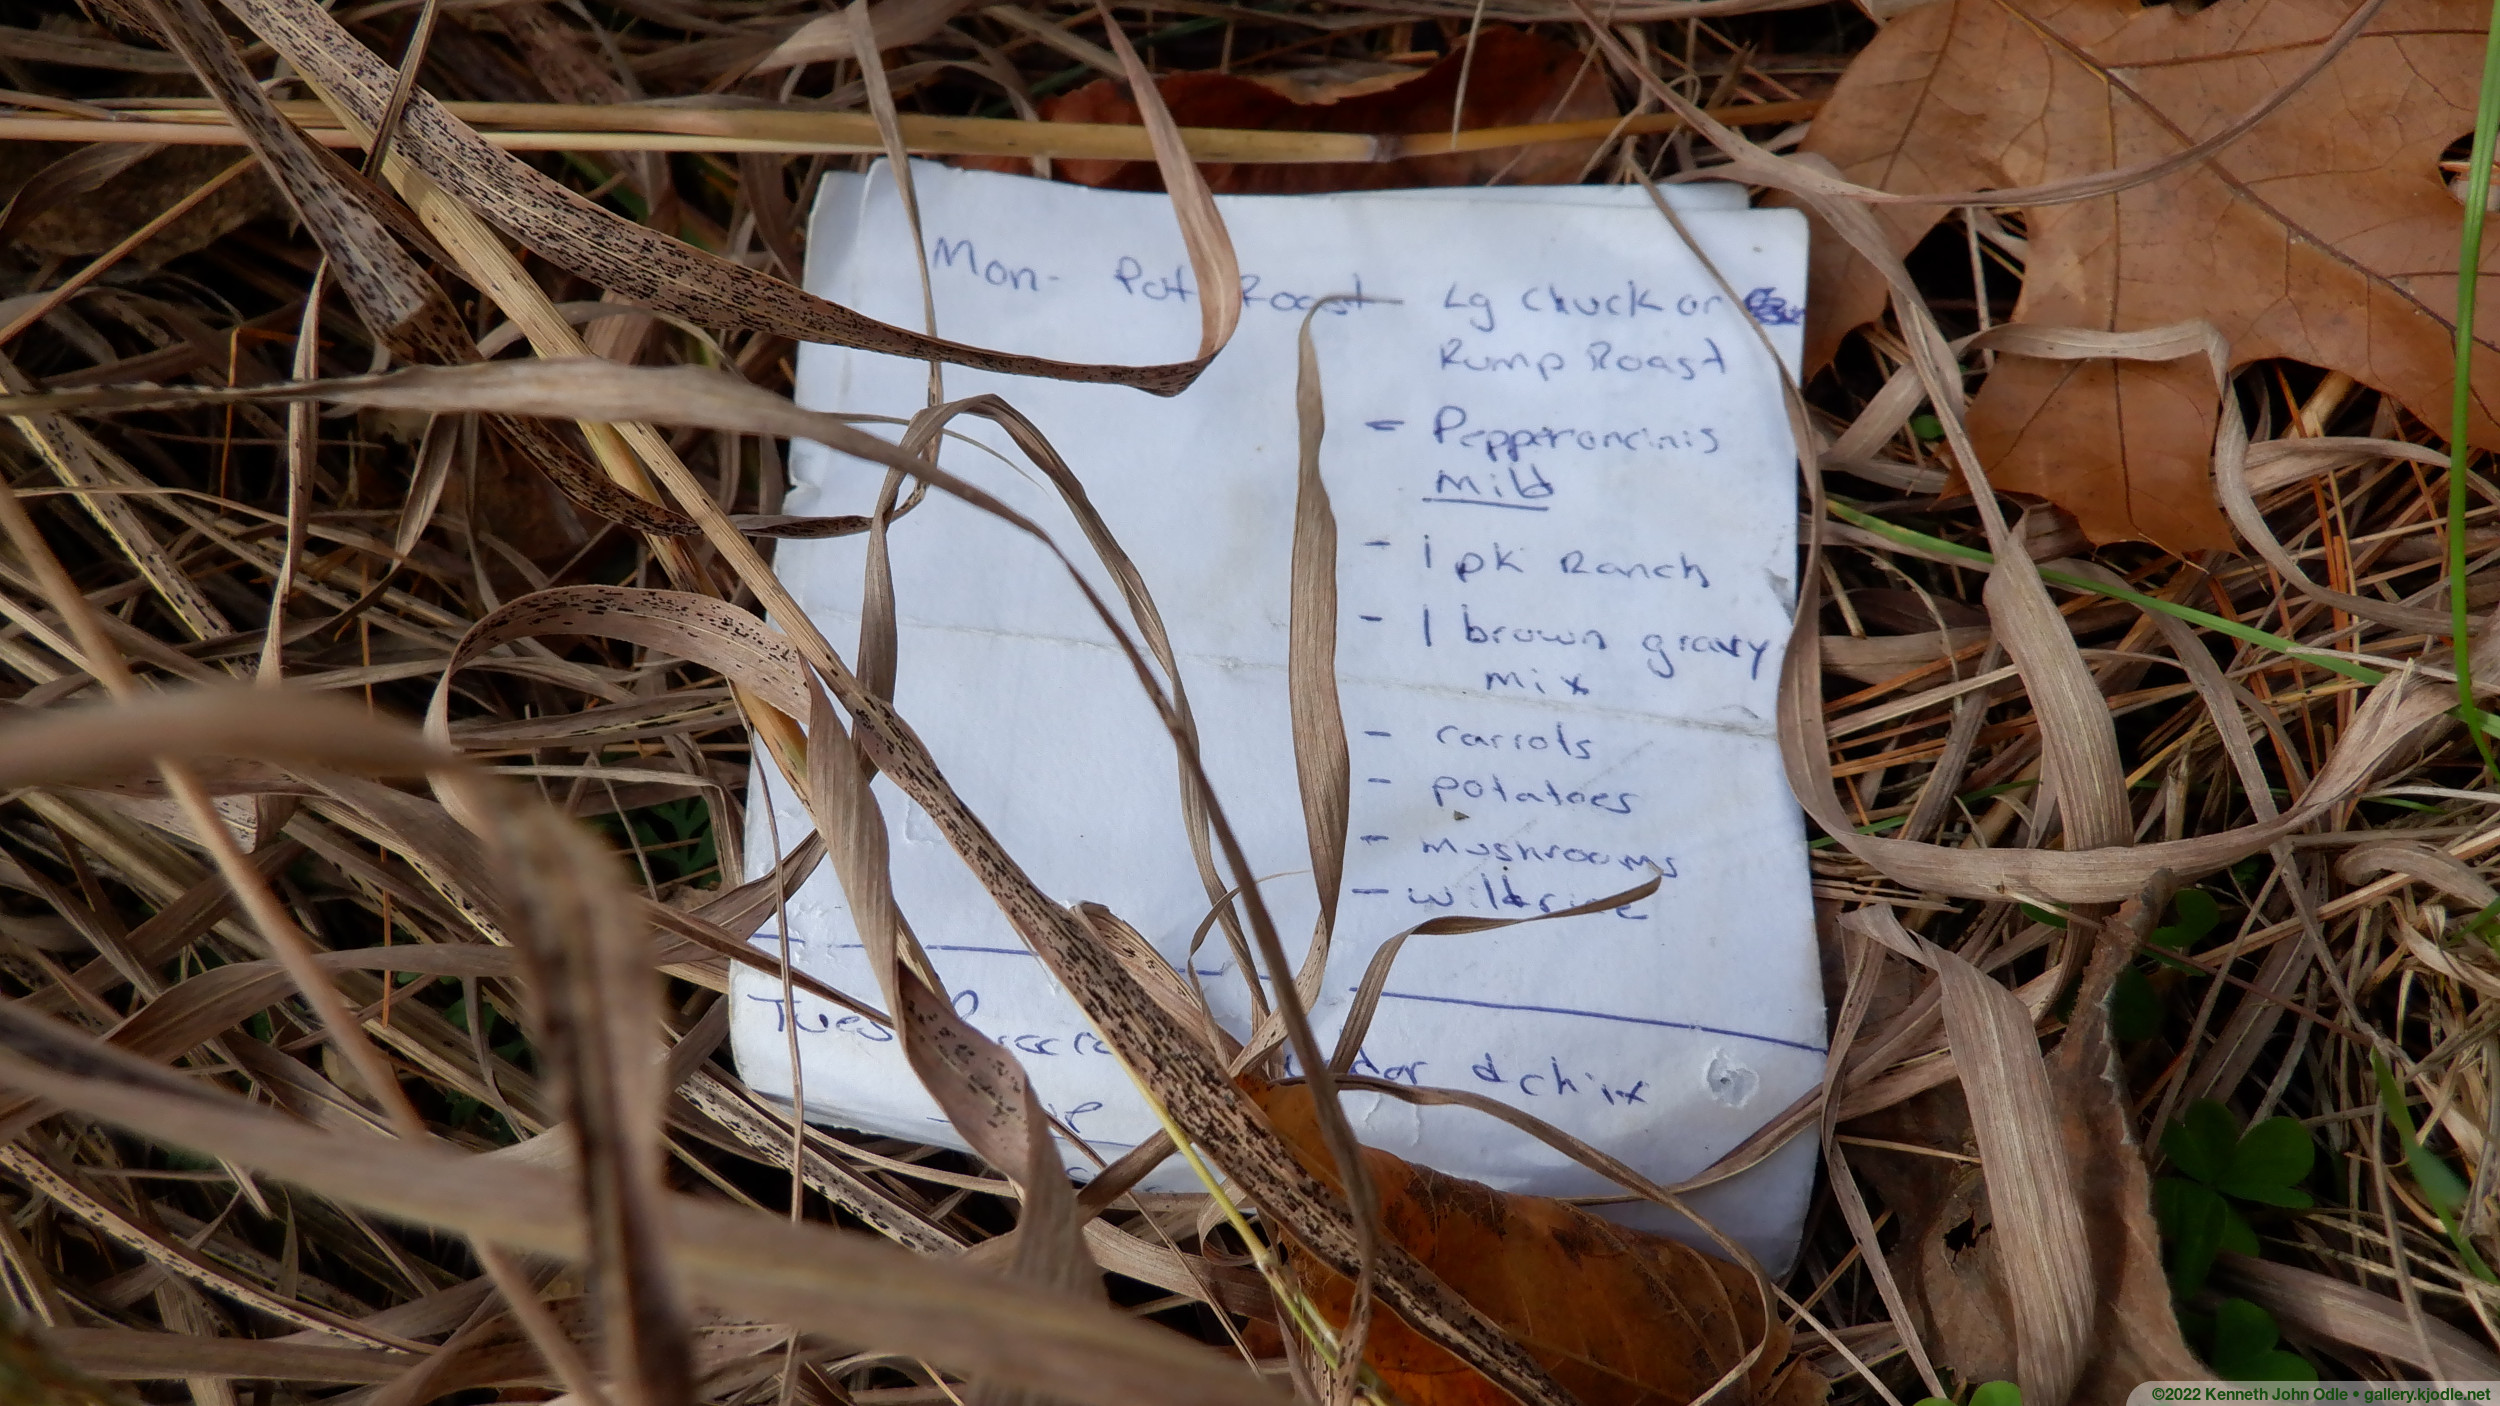 Mon- Pot Roast - Lg Chuck or
Rump Roast
- Pepperoncinis
Mild
- 1 pk Ranch
- 1 brown gravy
mix
- carrots
- potatoes
- mushrooms
- wildrice
Tues
& chix
©2022 Kenneth John Odle • gallery.kjodle.net